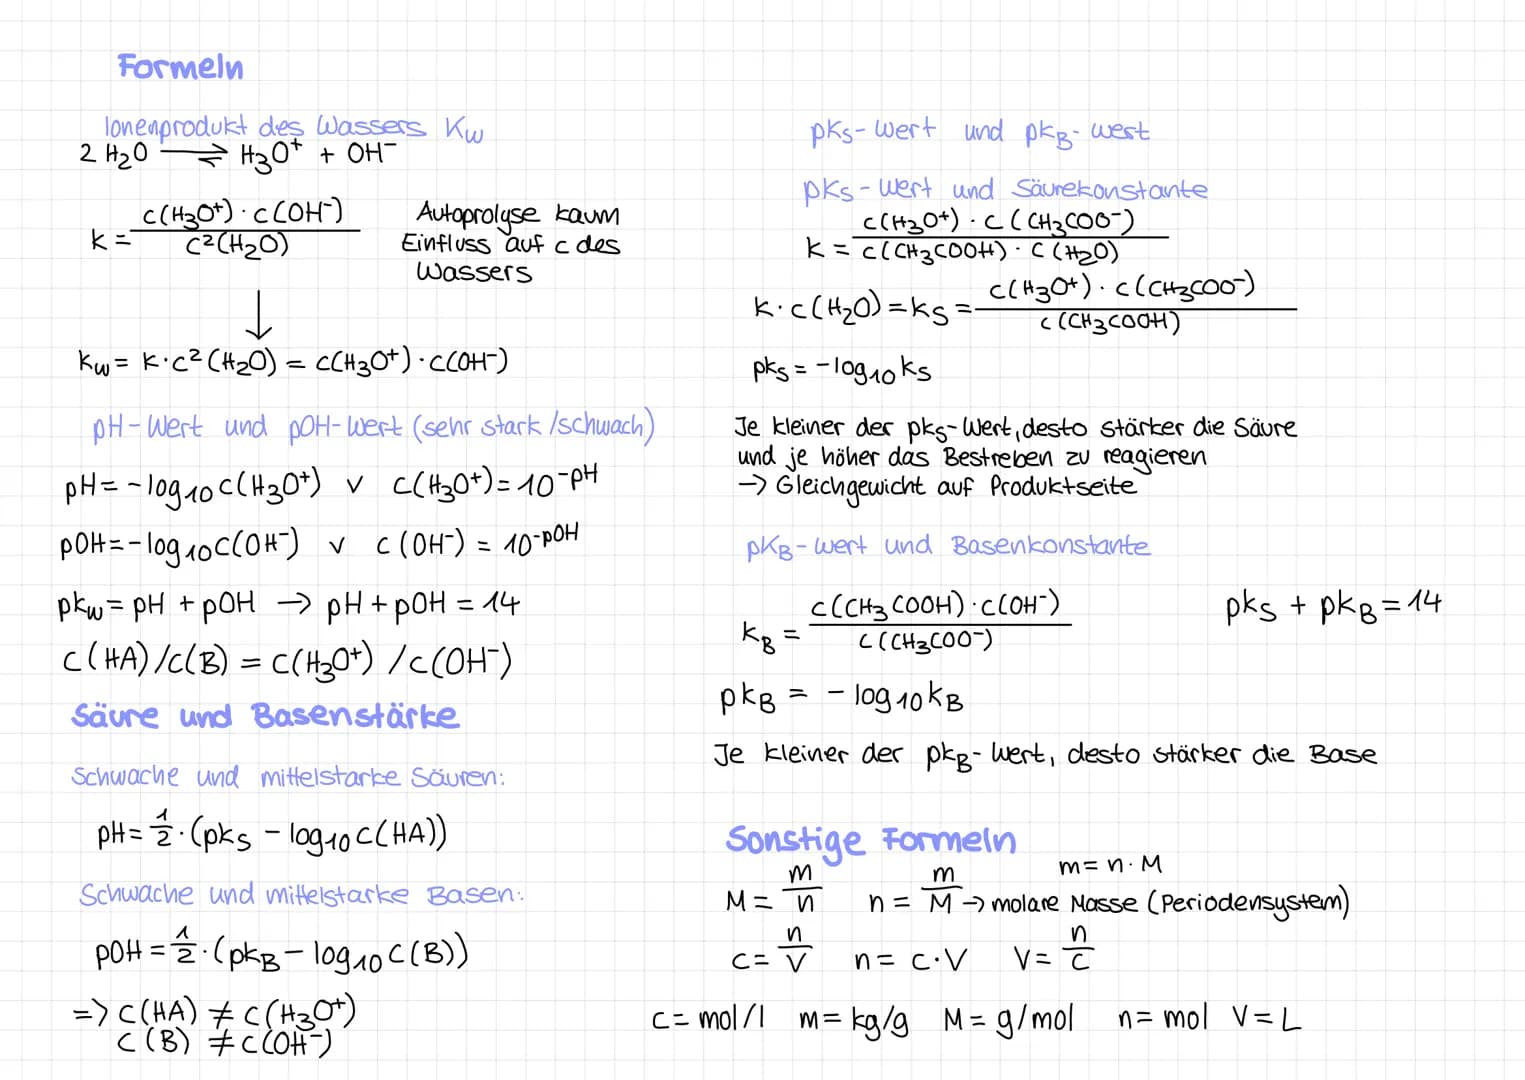 Formeln
Ionenprodukt des Wassers Kw
2 H₂O ⇌ H₃O⁺ + OH⁻
k = c(H₃O⁺) · c(OH⁻) / c²(H₂O)
Autoprolyse kaum
Einfluss auf c des
Wassers
↓
kw = k · c²(H₂O) = c(H₃O⁺) · c(OH⁻)
pH-Wert und pOH-Wert (sehr stark/schwach)
pH = -log₁₀ c(H₃O⁺) v c(H₃O⁺) = 10^-pH
pOH = -log₁₀ c(OH⁻) v c(OH⁻) = 10^-pOH
pkw = pH + pOH → pH + pOH = 14
c(HA)/c(B) = c(H₃O⁺) / c(OH⁻)
Säure und Basenstärke
Schwache und mittelstarke Säuren:
pH = 1/2 · (pks - log₁₀ c(HA))
Schwache und mittelstarke Basen:
pOH = 1/2 · (pkB - log₁₀ c(B))
=> c(HA) ≠ c(H₃O⁺)
c(B) ≠ c(OH⁻)
pks-Wert und pkB-wert
pks-Wert und Säurekonstante
k = c(H₃O⁺) · c(CH₃COO⁻) / c(CH₃COOH) · c(H₂O)
k · c(H₂O) = ks = c(H₃O⁺) · c(CH₃COO⁻) / c(CH₃COOH)
pks = -log₁₀ ks
Je kleiner der pks-Wert, desto stärker die Säure
und je höher das Bestreben zu reagieren
→ Gleichgewicht auf Produktseite
pKB-wert und Basenkonstante
kB = c(CH₃COOH) · c(OH⁻) / c(CH₃COO⁻)
pks + pkB = 14
pkB = - log₁₀ kB
Je kleiner der pkB-Wert, desto stärker die Base
Sonstige Formeln
m = n · M
M = m/n n = m/M → molare Masse (Periodensystem)
c = n/V n = c · V V = n/c
c = mol/l m = kg/g M = g/mol n = mol V = L